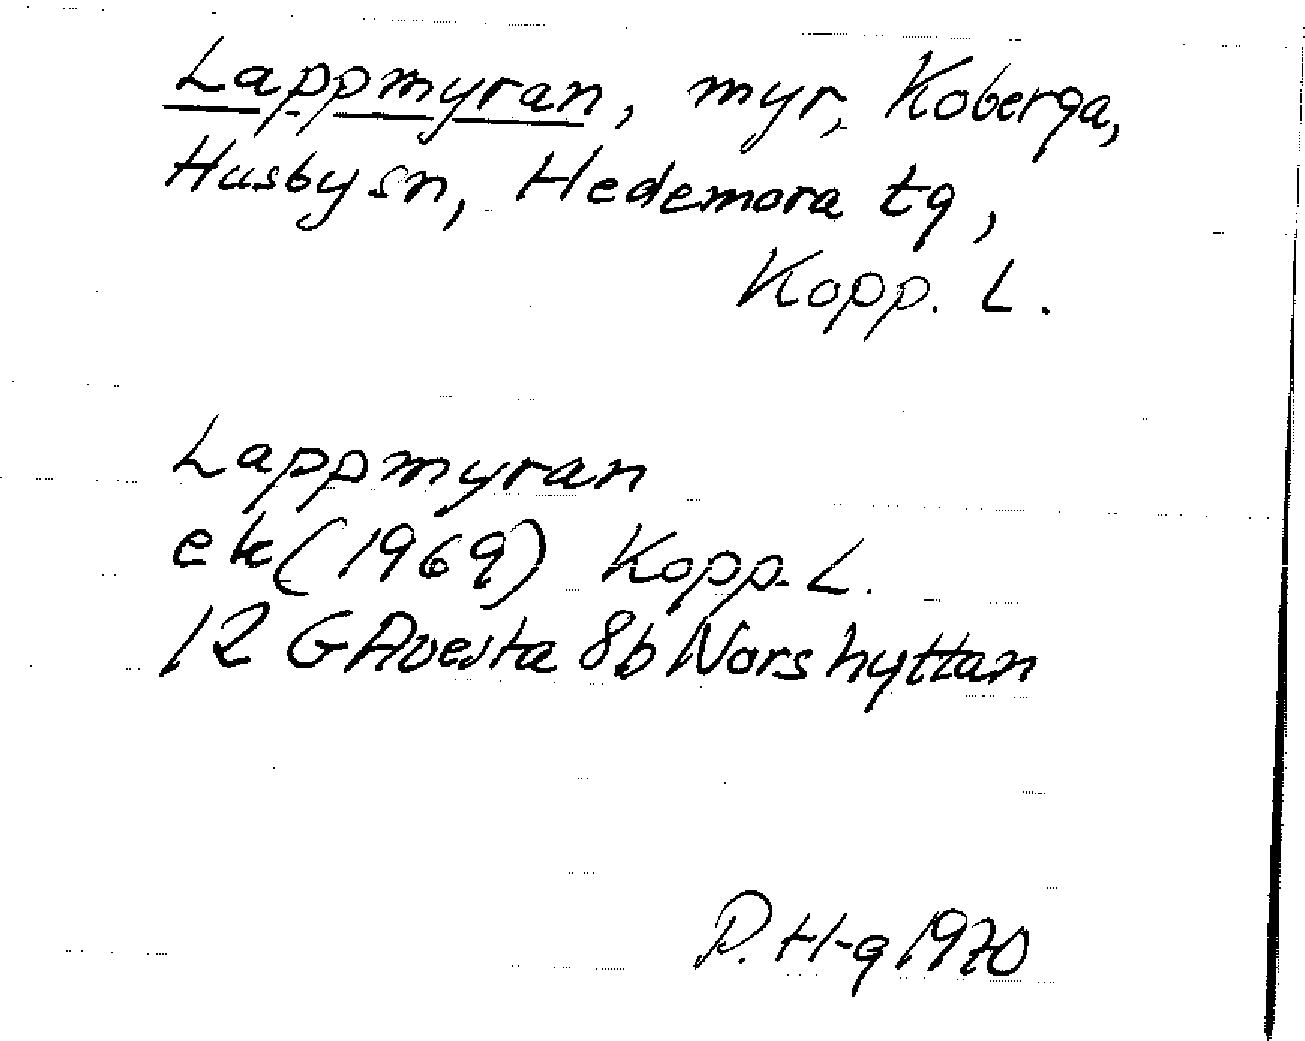 Lappmyran, myr, Koberga,
Husby sn, Hedemora tg,
Kopp. L.
Lappmyran
ek (1969) Kopp. L.
12 G Avesta 8b Norshyttan
P. H-g 1970